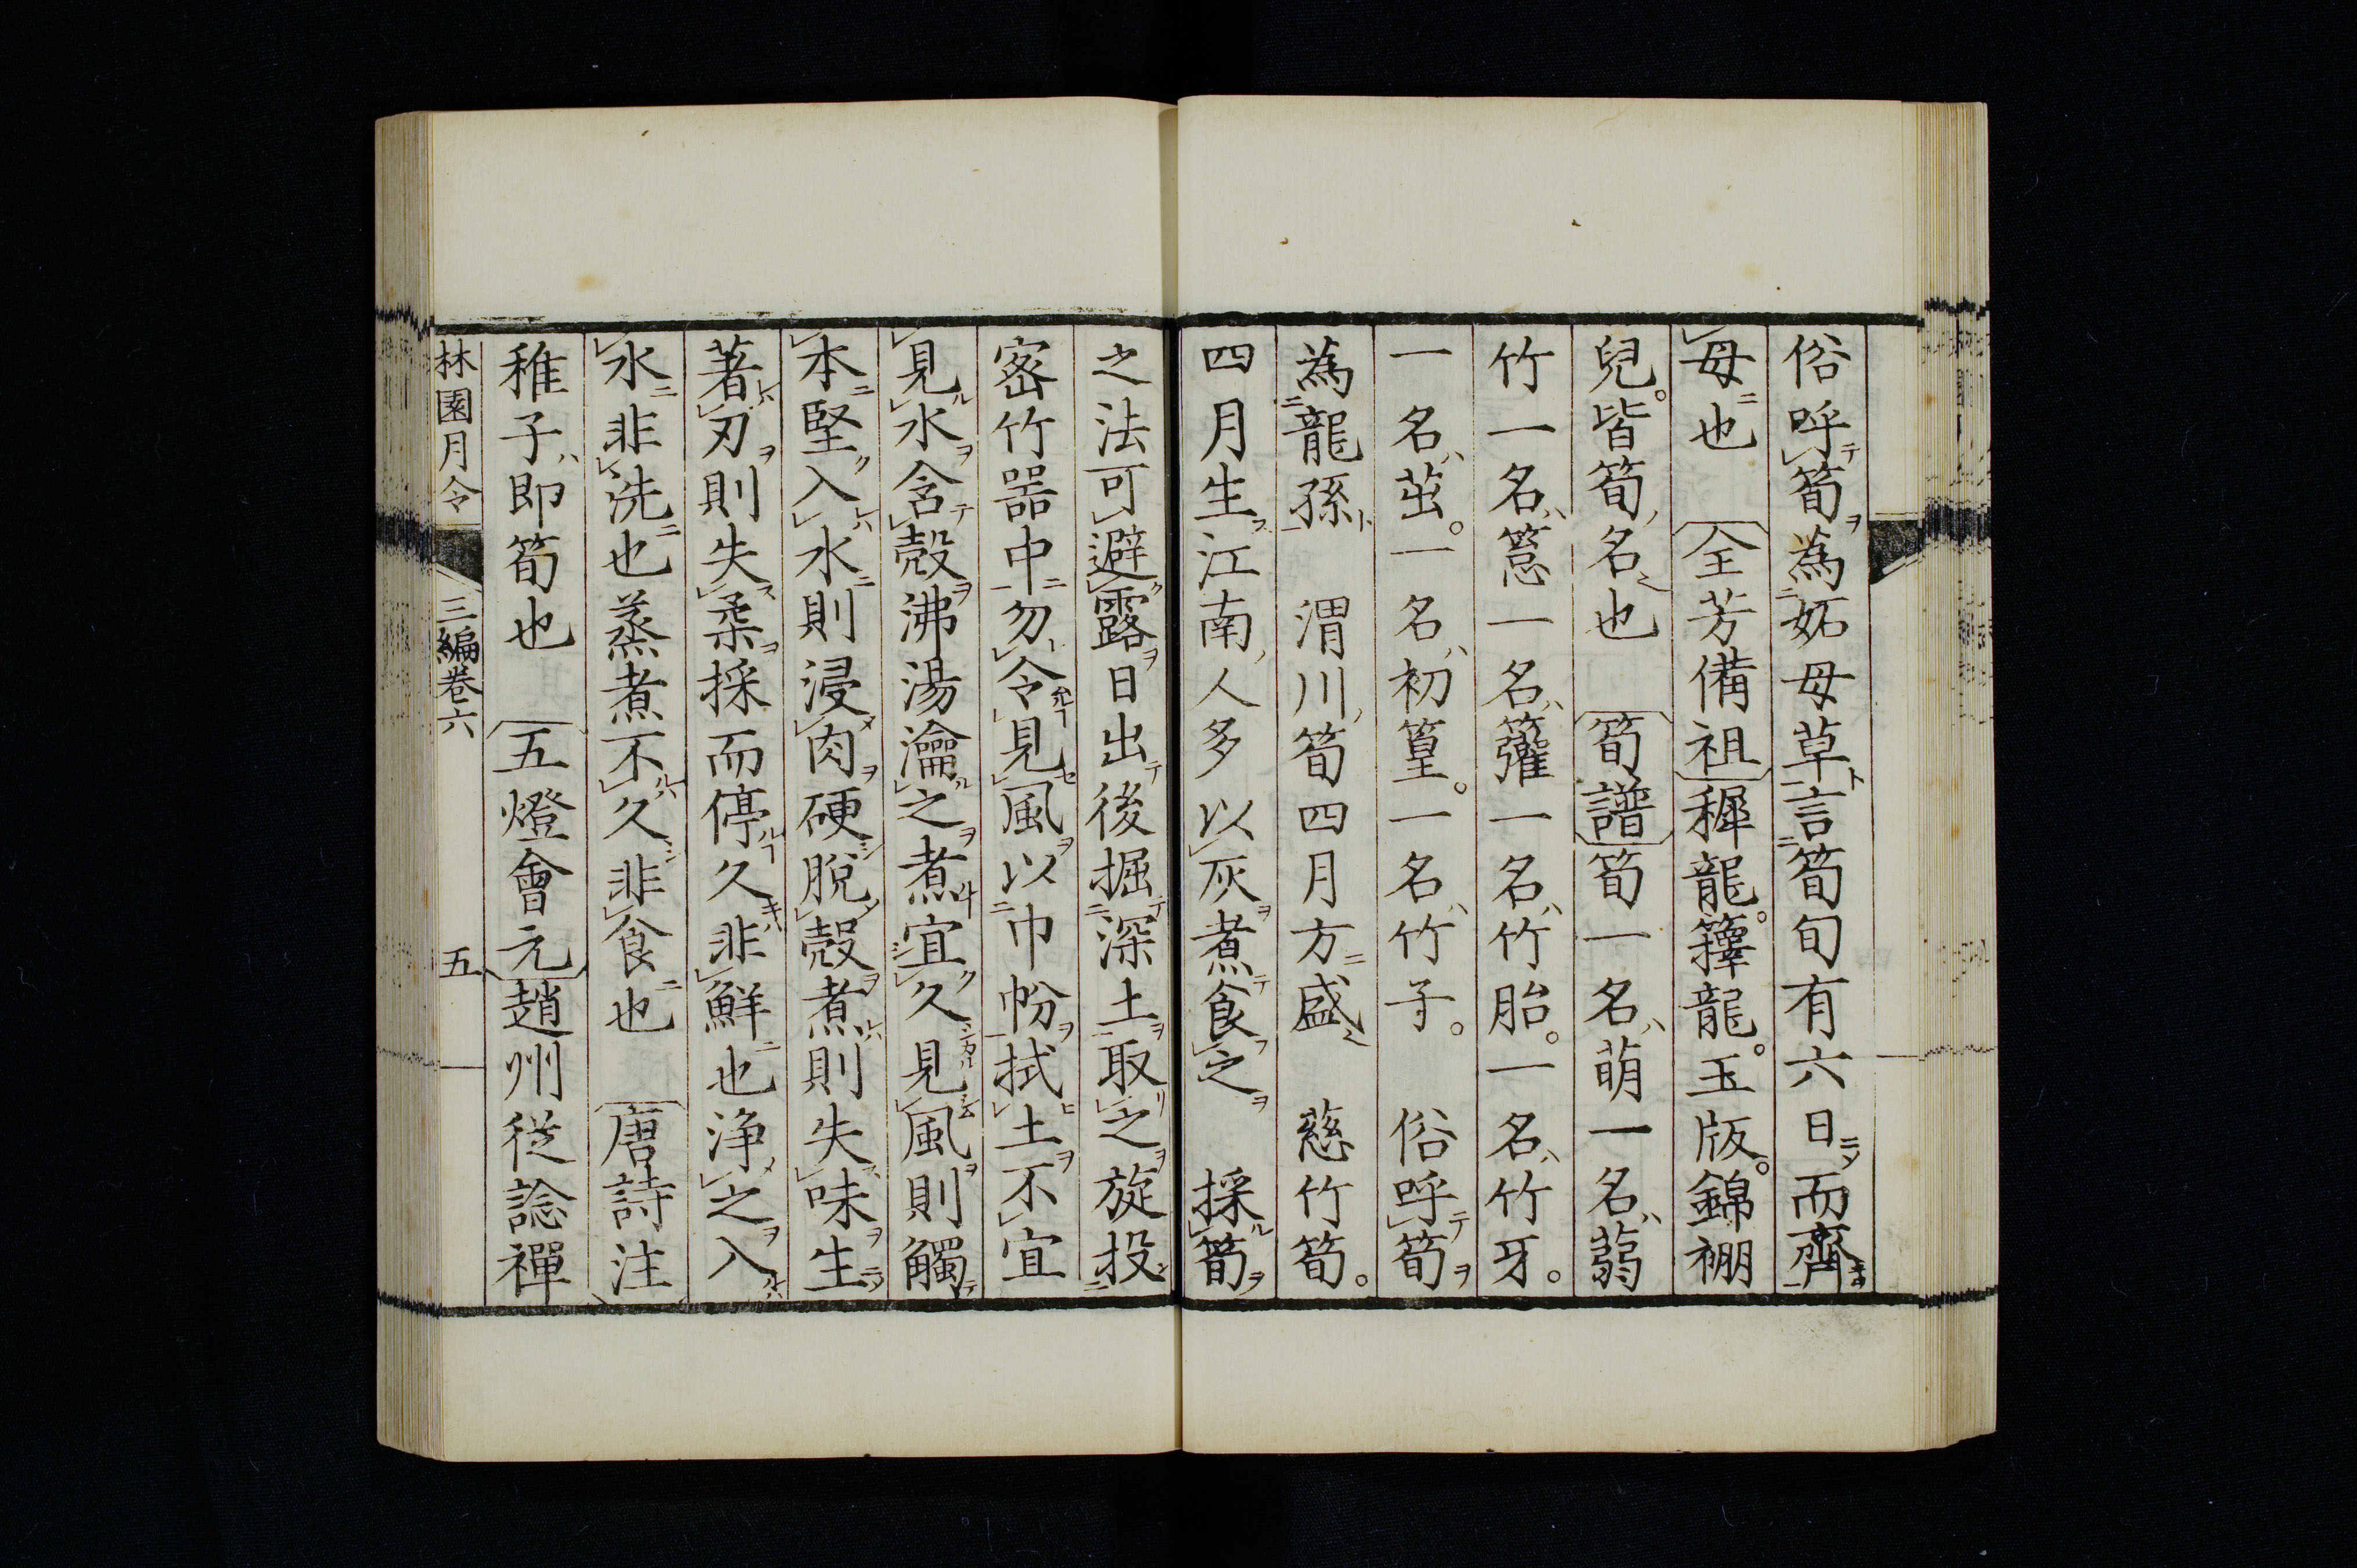 俗呼筍為妬母草言筍旬有六日而齊
母也 全芳備祖 穉龍。籜龍。玉版。錦褓
兒。皆筍名也 筍譜 筍一名萌一名蒻
竹一名䈠一名䉶一名竹胎。一名竹牙。
一名茁。一名初篁。一名竹子。 俗呼筍
為龍孫 渭川筍四月方盛 慈竹筍。
四月生江南人多以灰煮食之 採筍
之法可避露日出後掘深土取之旋投
密竹器中勿令見風以巾帉拭土不宜
見水含殼沸湯瀹之煮宜久見風則觸
本堅入水則浸肉硬脫殼煮則失味生
著刃則失柔採而停久非鮮也淨之入
水非洗也蒸煮不久非食也 唐詩注
稚子即筍也 五燈會元 趙州從諗禪
林園月令 三編卷六 五